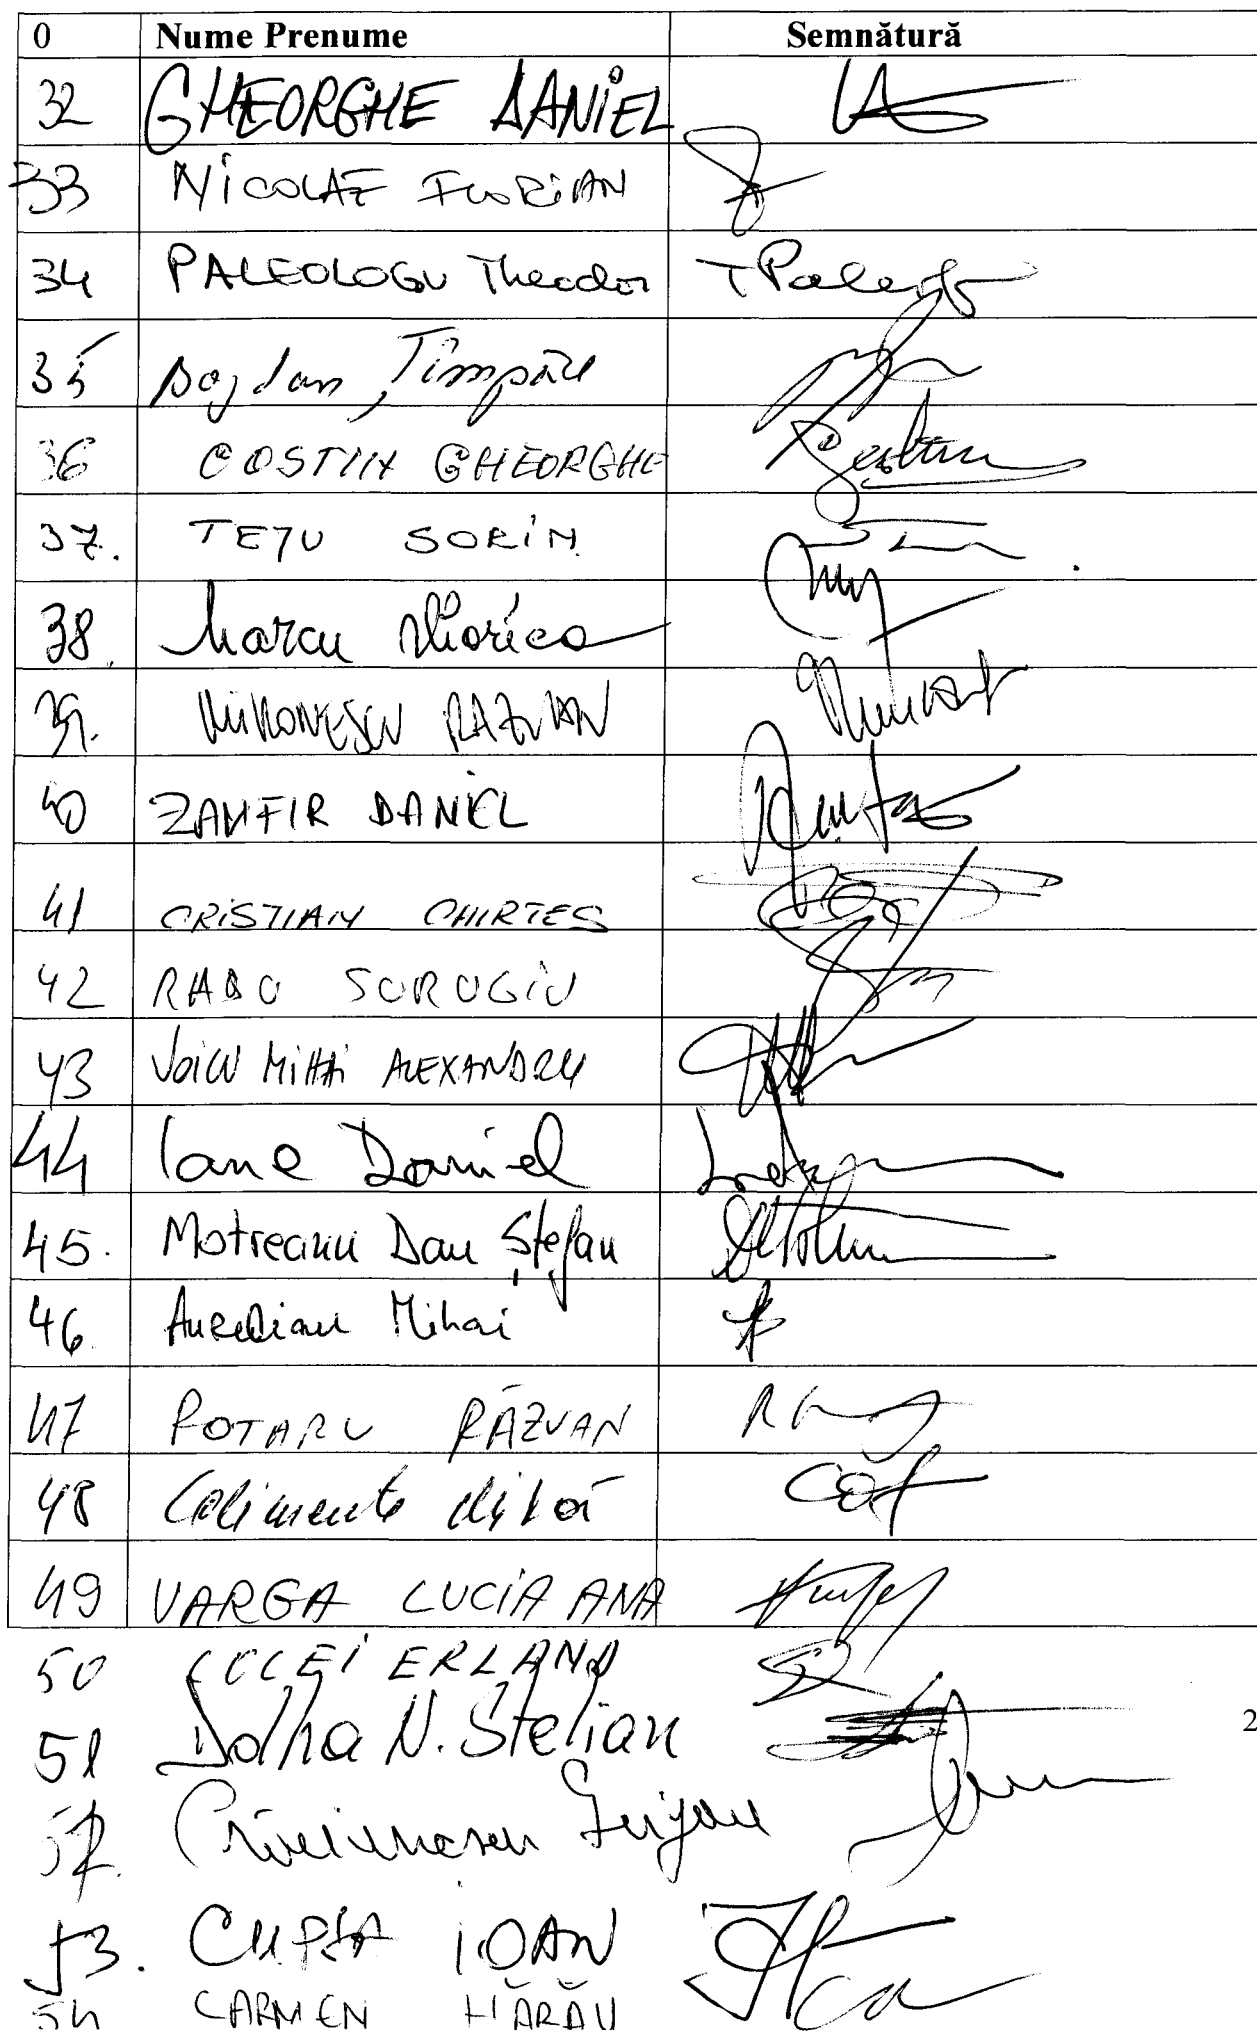 0 Nume Prenume Semnătură
32 GHEORGHE DANIEL
33 NICOLAE FLORIAN
34 PALEOLOGU Theodor T Paleolg
35 Bogdan Țîmpău
36 COSTIN GHEORGHE
37. TEJU SORIN
38. Marcu Viorica
39. MIRONESCU RĂZVAN
40 ZAMFIR DANIEL
41 CRISTIAN CHIRTES
42 RADU SURUGIU
43 VOICU MIHAI ALEXANDRU
44 Iane Daniel
45. Motreanu Dan Ștefan
46. Aurelian Mihai
47 ROTARU RĂZVAN
48 Calimente Mihai
49 VARGA LUCIA ANA
50 COCEI ERLAND
51 Dolha N. Stelian
2
52.
53. CUPȘA IOAN
54 CARMEN HĂRĂU